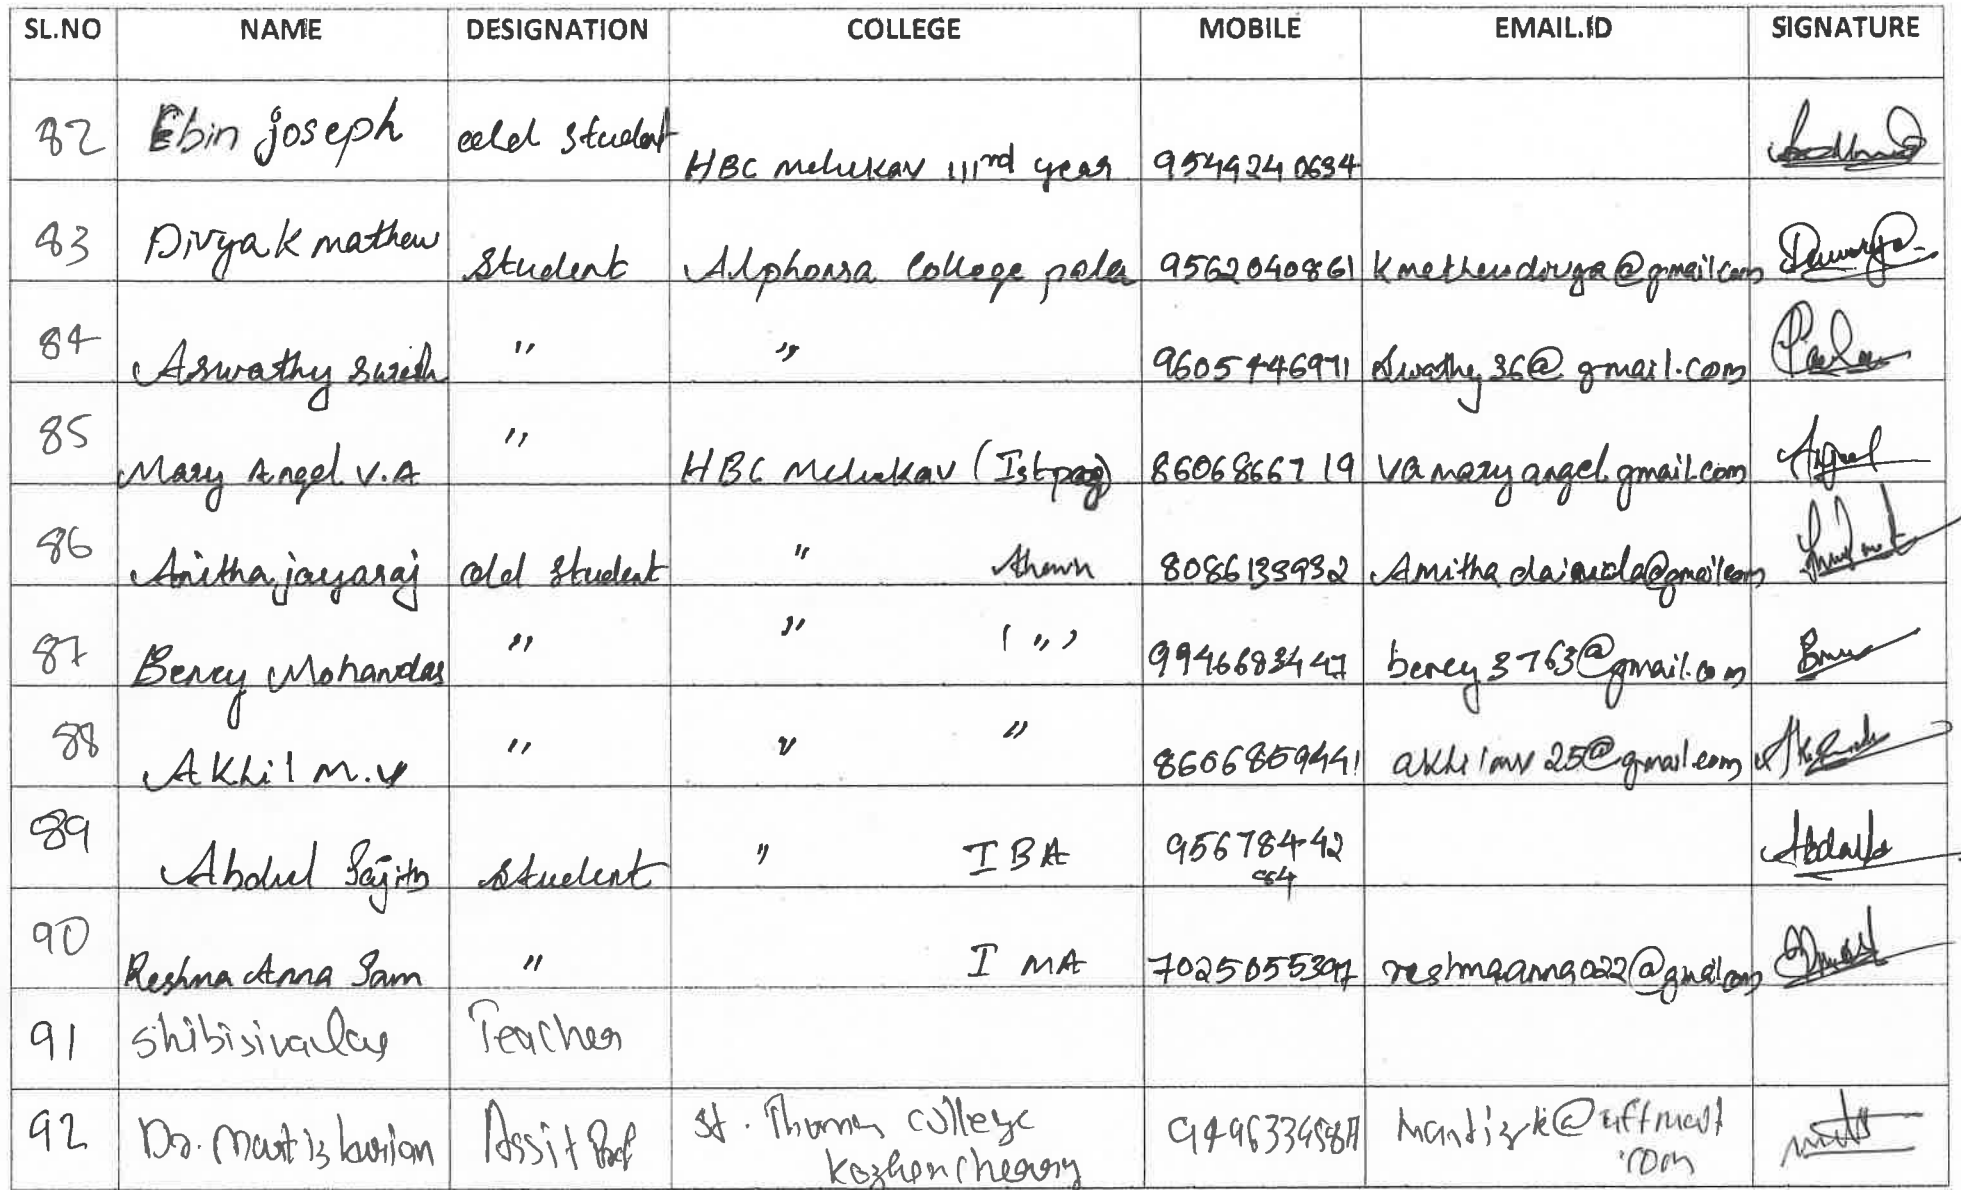 SL.NO NAME DESIGNATION COLLEGE MOBILE EMAIL.ID SIGNATURE
82 Ebin joseph old student HBC Melukav IIIrd year 9544240634
83 Divya K mathew Student Alphonsa College pala 9562040861 kmathewdivya@gmail.com
84 Aswathy Suresh " " 9605446971 Swathy36@gmail.com
85 Mary Angel V.A " HBC Melukav (Ist 8606866719 vamaryangel.gmail.com
86 Anitha jayaraj old student " 8086133932
87 Bency Mohandas " " ( " ) 9946683447 bency3763@gmail.com
88 Akhil M.V " " " 8606859441 akhilmv25@gmail.com
89 Abdul Sajith student " I BA 95678442
90 Reshma Anna Sam " I MA 7025055397 reshmaanna022@gmail.com
91 Shibisivalal Teacher
92 Dr. Martiz kurian Assit Prof St. Thomas College
Kozhencherry